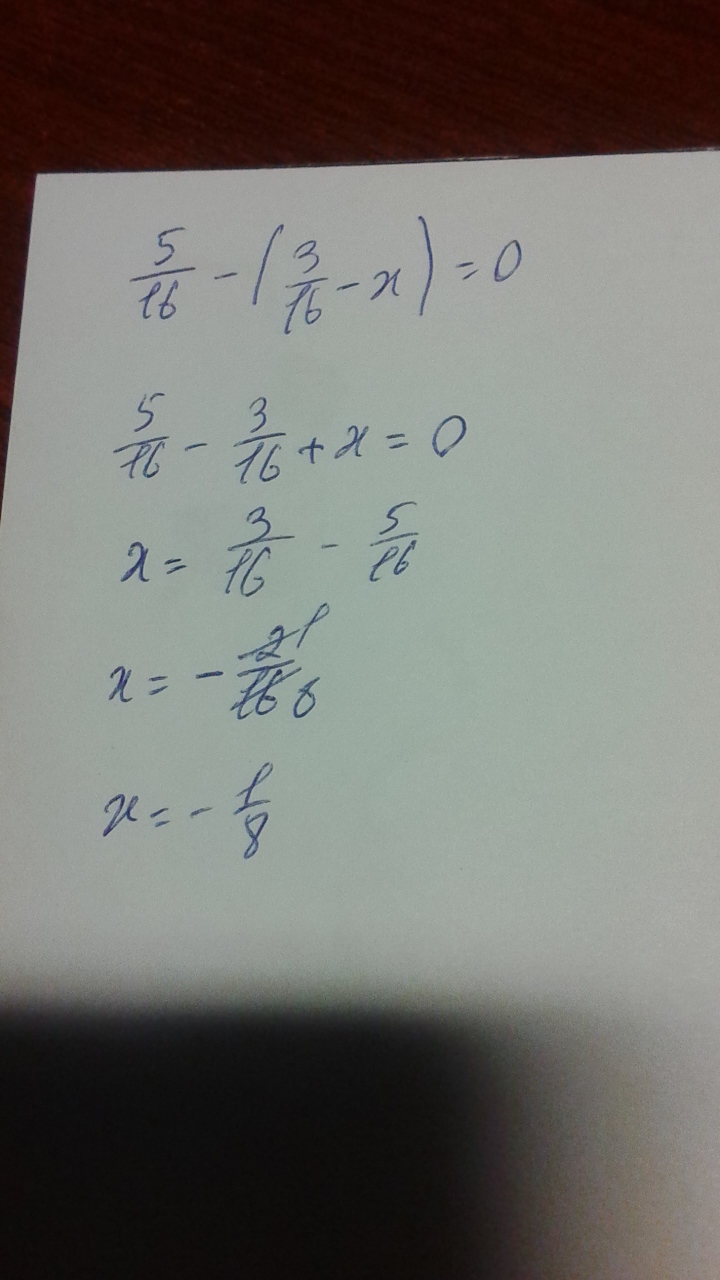 5/16 - (3/16 - x) = 0
5/16 - 3/16 + x = 0
x = 3/16 - 5/16
x = - 2/16 1/8
x = - 1/8